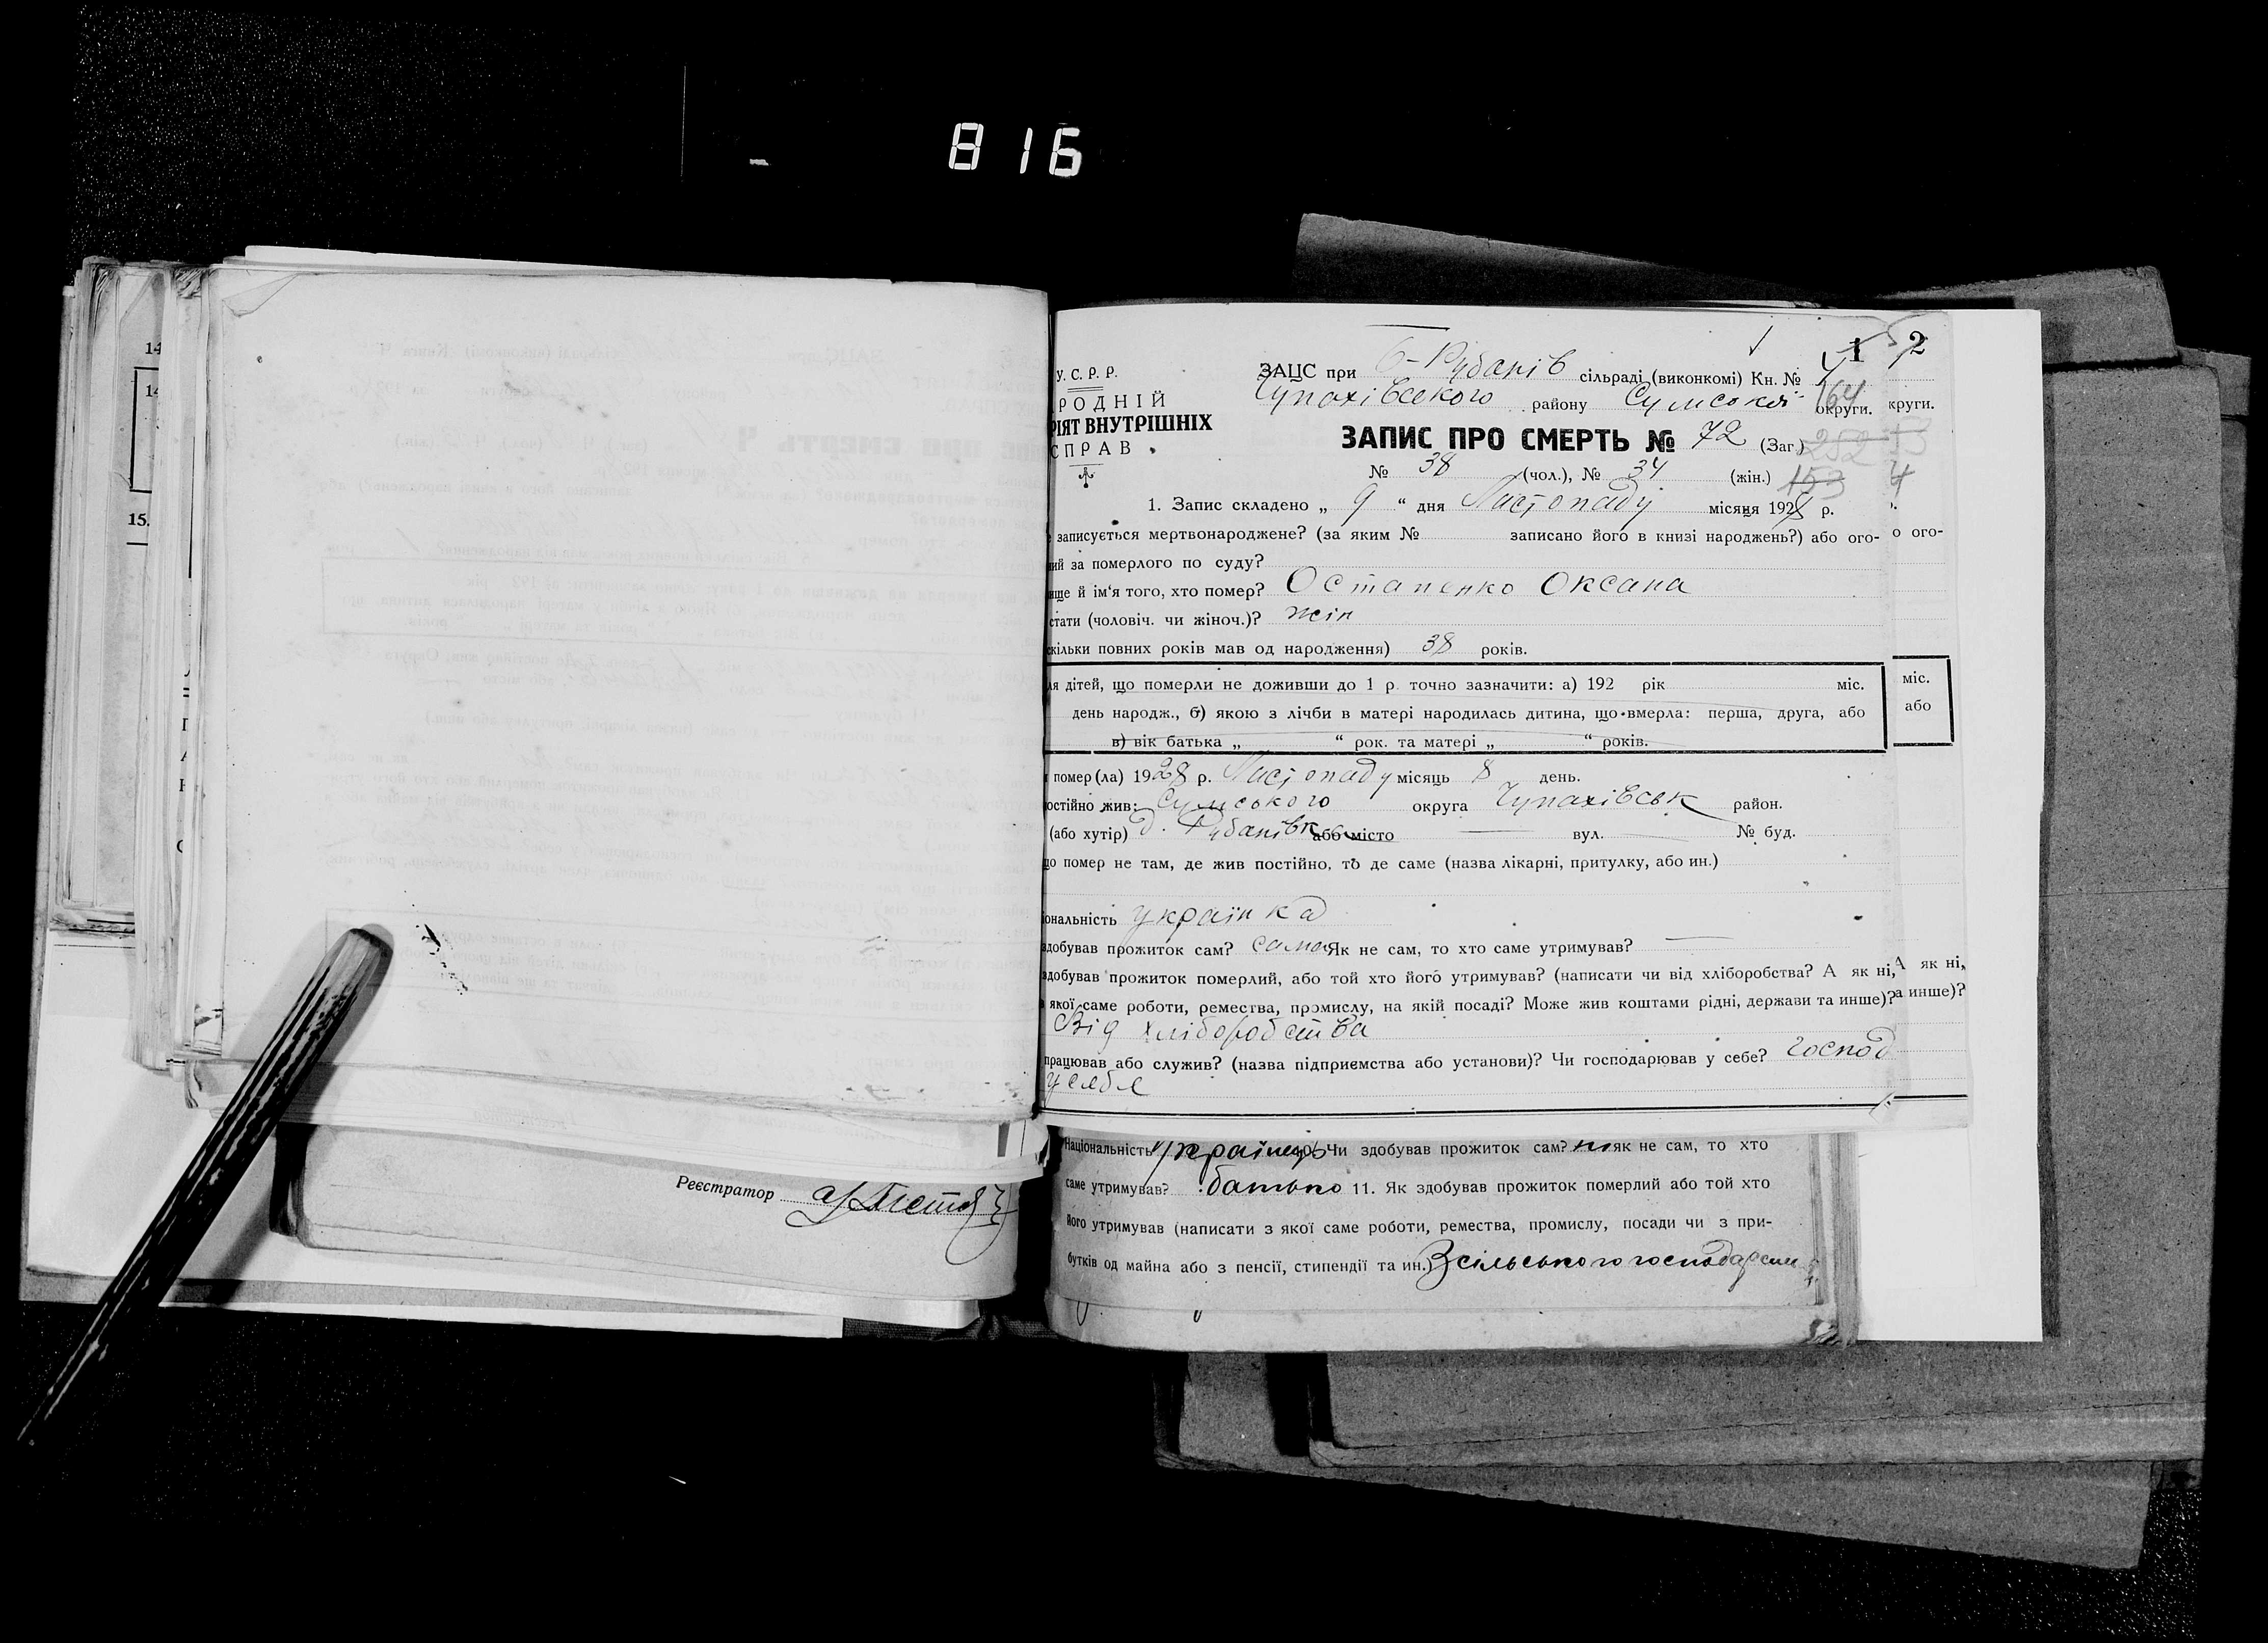 816
14
14
15.
Реєстратор
1 2
У. С. Р. Р.
РОДНІЙ
РІЯТ ВНУТРІШНІХ
СПРАВ
ЗАЦС при Б-Рубанів сільраді (виконкомі) Кн. №
Чупахівського району Сумської округи. круги.
164
ЗАПИС ПРО СМЕРТЬ № 72 (Заг.) 252
№ 38 (чол.), № 34 (жін.) 153 4
1. Запис складено „ 9 “ дня Листопаду місяця 1928 р.
записується мертвонароджене? (за яким № записано його в книзі народжень?) або ого- о ого-
ий за померлого по суду?
ище й ім‘я того, хто помер? Остапенко Оксана
стати (чоловіч. чи жіноч.)? жін
скільки повних років мав од народження) 38 років.
ля дітей, що померли не доживши до 1 р. точно зазначити: а) 192 рік міс. міс.
день народж., б) якою з лічби в матері народилась дитина, що вмерла: перша, друга, або або
в) вік батька „ “ рок. та матері „ “ років.
помер (ла) 1928 р. Листопаду місяць 8 день.
остійно жив: Сумського округа Чупахівськ район.
(або хутір) д. Рубанівка або місто — вул. — № буд.
що помер не там, де жив постійно, то де саме (назва лікарні, притулку, або ин.)
іональність українка
здобував прожиток сам? сама Як не сам, то хто саме утримував? —
здобував прожиток померлий, або той хто його утримував? (написати чи від хліборобства? А як ні, А як ні,
якої саме роботи, ремества, промислу, на якій посаді? Може жив коштами рідні, держави та инше)? а инше)?
Від хліборобства
працював або служив? (назва підприємства або установи)? Чи господарював у себе? господ
у себе
Національність українець Чи здобував прожиток сам? ні як не сам, то хто
саме утримував? батько 11. Як здобував прожиток померлий або той хто
його утримував (написати з якої саме роботи, ремества, промислу, посади чи з при-
бутків од майна або з пенсії, стипендії та ин.) З сільського господарств